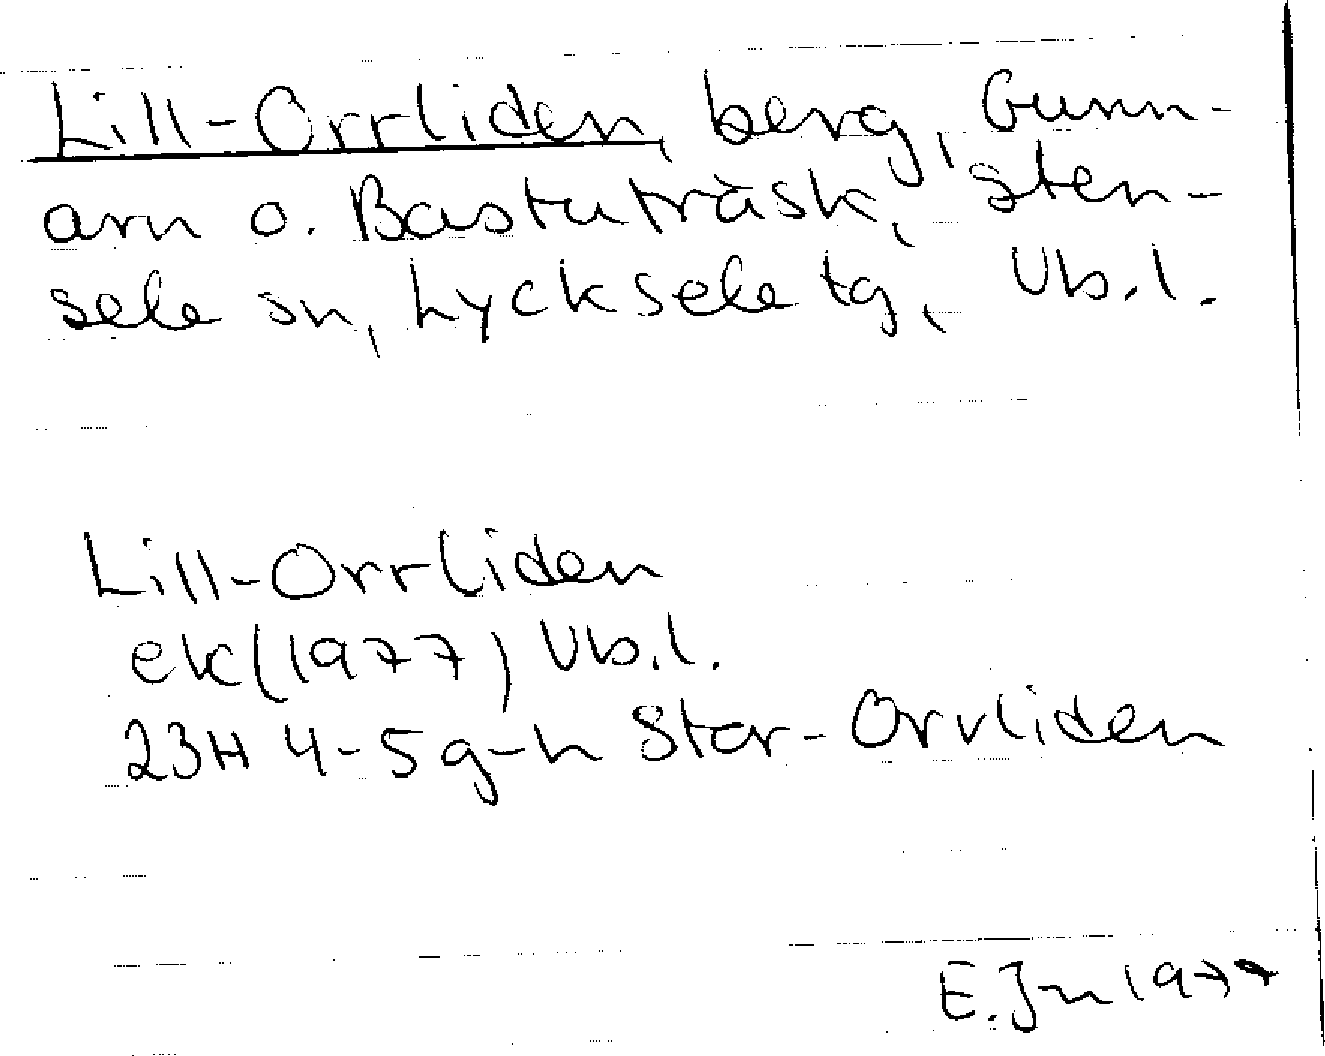 Lill-Orrliden, berg, Gunn-
arn o. Bastuträsk, Sten-
sele sn, Lycksele tg, Vb.l.
Lill-Orrliden
ek(1977) Vb.l.
23H 4-5g-h Stor-Orrliden
E.Jn 1977